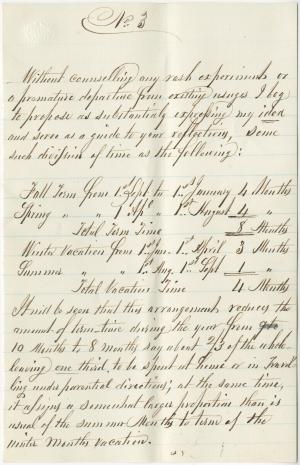 No. 3
Without counselling any rash experiments or
a premature departure from existing usages I beg
to propose as substantialy expressing my idea
and serve as a guide to your reflection, some
such division of time as the following:
Fall Term from 1st Sept to 1st January 4 Months
Spring " " 1st Apl " 1st August 4 "
Total Term Time 8 Months
Winter Vacation from 1st Jan. 1st April 3 Months
Summer " " 1st Aug. 1st Sept 1 "
Total Vacation Time 4 Months
It will be seen that this arrangement reduces the
amount of term-time during the year from
10 Months to 8 months say about 2/3 of the whole
leaving one third, to be spent at home or in Travel
ling under parental directions; at the same time,
it assigns a somewhat larger proportion than is
usual of the summer Months to term of the
winter months vacation.